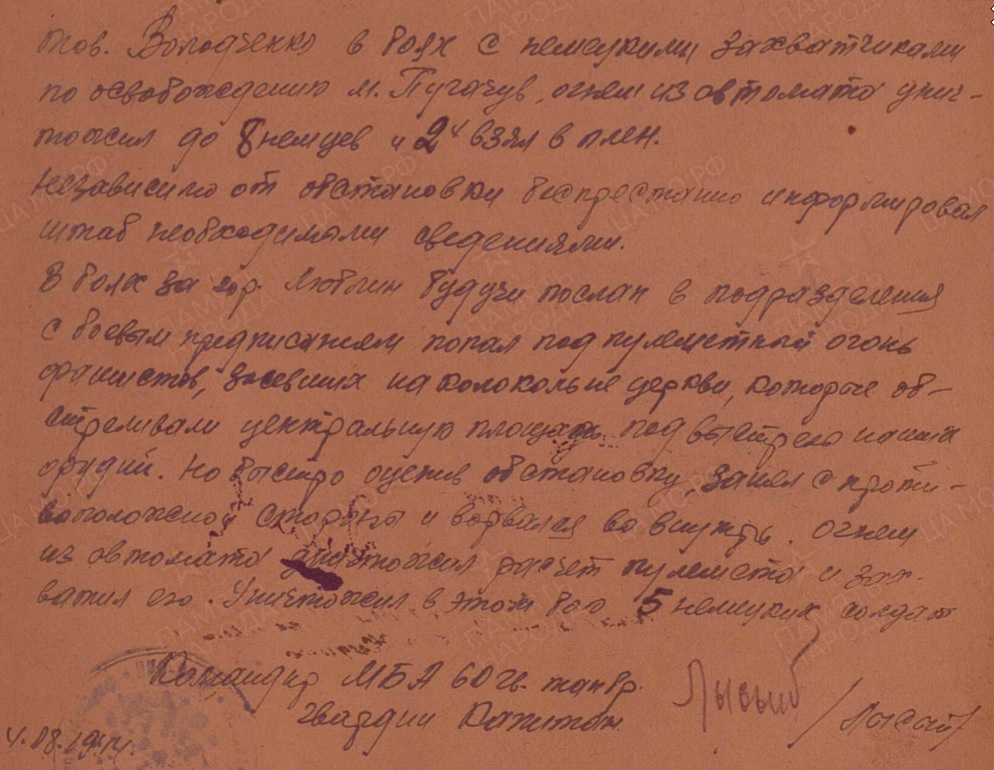 тов. Володченко в боях с немецкими захватчиками
по освобождению м. Пугачув, огнем из автомата унич-
тожил до 8 немцев и 2ч взял в плен.
Независимо от обстановки беспрестанно информировал
штаб необходимыми сведениями.
В боях за гор. Люблин будучи послан в подразделения
с боевым предписанием попал под пулеметный огонь
фашистов, засевших на колокольне церкви, которые об-
стреливали центральную площадь под наши
орудий. Но быстро оценив обстановку, зашел с проти-
воположной стороны и ворвался во внутрь. Огнем
из автомата уничтожил расчет пулемета и зах-
ватил его. Уничтожил в этом бою 5 немецких солдат
Командир МБА 60 гв. танбр.
гвардии Капитан
Лысый /Лысый/
4.08.1944.